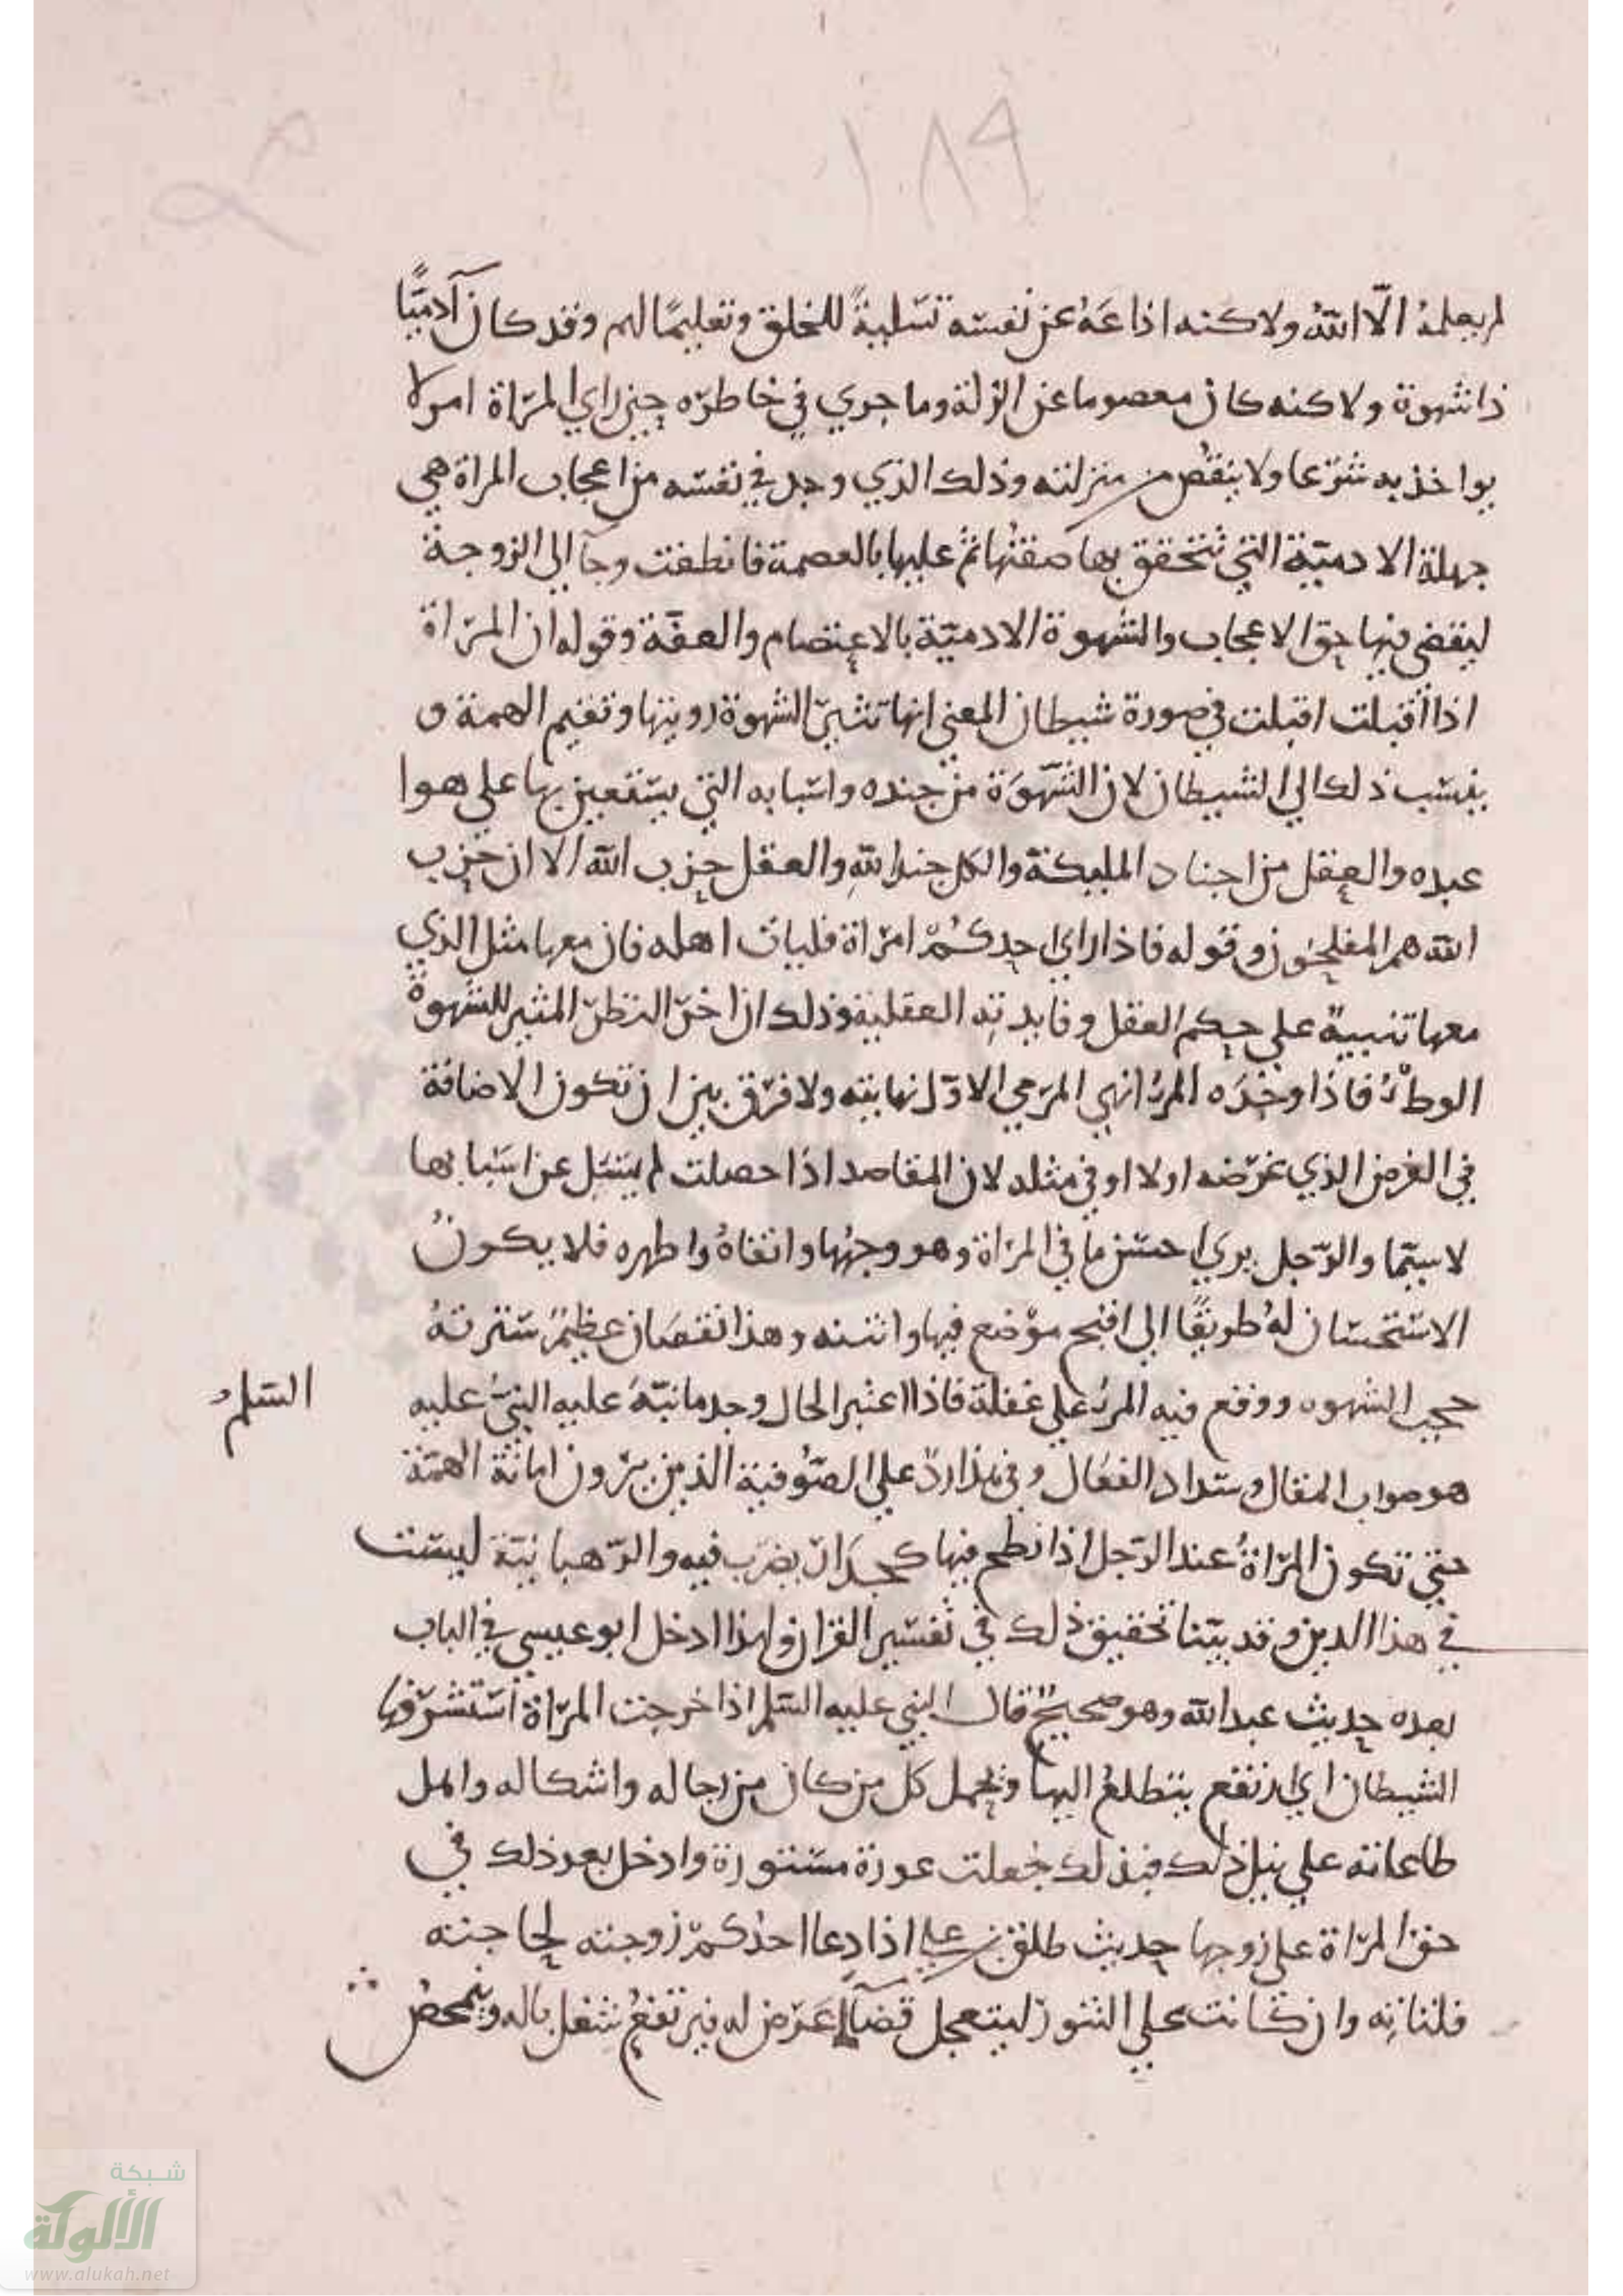 ١٨٩
لم يعلمهُ الّا اللّهُ ولاكنه اذاعَهُ عن نفسه تسليةً للخلق وتعليمًا لهم وقد كان آدميًّا
ذا شهوة ولاكنه كان معصوما عن الزلة وما جري في خاطره حين راي المراة امر لا
يواخذ به شرعا ولا ينقُص من منزلته وذلك الذي وجد في نفسه من اعجاب المراة هي
جبلة الادميّة التي تتحقق بها صفتُها ثم عليها بالعصمة فانطفت وجآ الي الزوجة
ليقضي فيها حق الاعجاب والشهوة الادميّة بالاعتصام والعفّة وقوله ان المراة
اذا أقبلت اقبلت في صورة شيطان المعني انها تثير الشهوة رويتها وتقيم الهمة و
ينسب ذلك الي الشيطان لان الشّهوَة من جنده واسبابه التي يستعين بها علي هوا
عبده والعقل من اجناد المليكة والكل جند اللّهِ والعقل حزب اللّه الا ان حزب
اللّه هم المفلحُون وقوله فاذا راي احدكُمْ امراة فليات اهله فان معها مثل الذي
معها تنبيهٌ علي حكم العقل وفايدتِه العقلية وذلك ان اخر النظر المثير للشهوةُ
الوطْءُ فاذا وجَدَه المرءُ انهي المرمي الاوّل نهايته ولا فرق بين ان تكون الاضافة
في الغرض الذي غرضه اولا او في مثله لان المقاصد اذا حصلت لم يُسَل عن اسبابها
لاسيّما والرّجل يري احسن ما في المراة وهو وجهُها وانقاهُ واطهره فلا يكونُ
الاستحسان لهُ طريقًا الي اقبح موْضع فيها وانتنه وهذا نقصَان عظيمٌ سترتهُ
حجب الشهوه ووقع فيه المرءُ علي غفلة فاذا اعتبر الحال وجد ما نبّهَ عليه النبيُّ عليه السلم
هو صواب المقال وسداد الفعَال وفي هذا ردٌّ علي الصُّوفية الذين يرون اماتَة الهمّة
حتي تكون المراةُ عند الرّجل اذا نطح فيها كجدَار يضرَب فيه والرّهبانيّة ليست
في هذا الدين وقد بيّنا تحقيق ذلك في تفسير القران ولهذا ادخل ابو عيسي في الباب
بعده حديث عبد اللّه وهو صحيحٌ قال النبي عليه السلم اذا خرجت المراة استشرفها
الشيطان اي ارتفع يتطلعُ اليها ويحمل كل من كان من رجاله واشكاله واهل
طاعاته علي نيل ذلك فبذلك جُعلت عورة مستورة وادخل بعد ذلك في
حق المراة علي زوجها حديث طلق بن علي اذا دعا احدُكمْ زوجته لحاجته
فلتاتِه وان كانت علي التنور ليتعجل قضآ ما عَرض له فيرتفعُ شغل باله ويتمحضُ
شبكة
الألوكة
www.alukah.net